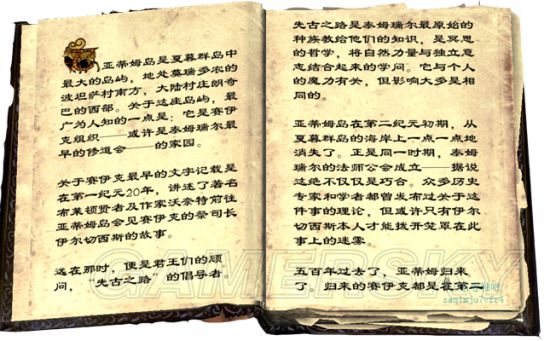 亚蒂姆岛是夏暮群岛中
最大的岛屿，地处莫瑞多农的
波坦萨村南方，大陆村庄朗奇
巴的西部。关于这座岛屿，最
广为人知的一点是：它是赛伊
克组织——或许是泰姆瑞尔最
早的修道会——的家园。
关于赛伊克最早的文字记载是
在第一纪元20年，讲述了著名
布莱顿贤者及作家沃奈特前往
亚蒂姆岛会见赛伊克的祭司长
伊尔切西斯的故事。
远在那时，便是君王们的顾
问，“先古之路”的倡导者。
先古之路是泰姆瑞尔最原始的
种族教给他们的知识，是冥思
的哲学，将自然力量与独立意
志结合起来的学问。它与个人
的魔力有关，但影响大多是相
同的。
亚蒂姆岛在第二纪元初期，从
夏暮群岛的海岸上一点一点地
消失了。正是同一时期，泰姆
瑞尔的法师公会成立——据说
这绝不仅仅是巧合。众多历史
专家和学者都曾发布过关于这
件事的理论，但或许只有伊尔
切西斯本人才能拨开笼罩在此
事上的迷雾。
五百年过去了，亚蒂姆归来
了。归来的赛伊克都是在第
GAMERSKY
zaq1mju7vfr4